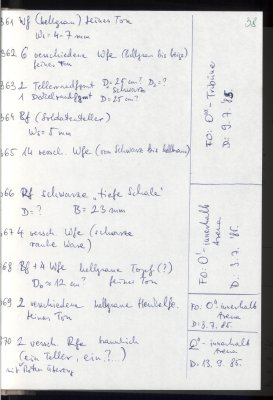 38
361 Wf (hellgrau) feiner Ton
Ws = 4-7 mm
362 6 verschiedene Wfe (hellgrau bis beige)
feiner Ton
363 2 Tellerrandfgmt D₁ = 25 cm? D₂ = ?
schwarz
1 Deckelrandfgmt D = 25 cm?
364 Bf (Soldatenteller)
Ws = 5 mm
365 14 versch. Wfe (von schwarz bis hellbraun)
FO: O - Tribüne
D: 9.7.85.
366 Rf schwarze "tiefe Schale"
D = ? B = 23 mm
367 4 versch. Wfe (schwarze
rauhe Ware)
368 Bf + 4 Wfe hellgraue Topf (?)
D₀ ≈ 12 cm? feiner Ton
FO: O - innerhalb
Arena
D: 3.7.85.
369 2 verschiedene hellgraue Henkelfr.
feiner Ton
FO: O innerhalb
Arena
D: 3.7.85.
370 2 versch. Rfe bräunlich
(ein Teller, ein ?...)
mit Überzug
O - innerhalb
Arena
D: 13.9.85.